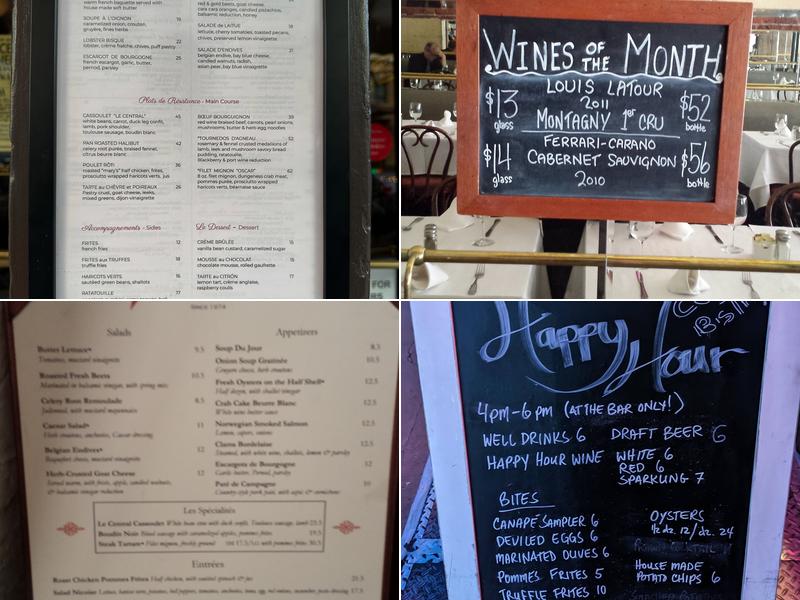 warm french baguette served with
house made soft butter
SOUPE À L'OIGNON 19
caramelized onion, crouton,
gruyère, fines herbs
LOBSTER BISQUE 22
lobster, crème fraîche, chives, puff pastry
ESCARGOT DE BOURGOGNE 25
french escargot, garlic, butter,
pernod, parsley
red & gold beets, goat cheese,
cara cara oranges, candied pistachio,
balsamic reduction, honey
SALADE de LAITUE 18
lettuce, cherry tomatoes, toasted pecans,
chives, preserved lemon vinaigrette
SALADE D'ENDIVES 21
belgian endive, bay blue cheese,
candied walnuts, radish,
asian pear, bay blue vinaigrette
Plats de Résistance - Main Course
CASSOULET "LE CENTRAL" 45
white beans, carrot, duck leg confit,
lamb, pork shoulder,
toulouse sausage, boudin blanc
PAN ROASTED HALIBUT 42
celery root purée, braised fennel,
citrus beurre blanc
POULET RÔTI 36
roasted "mary's" half chicken, frites,
prosciutto wrapped haricots verts, jus
TARTE au CHÈVRE et POIREAUX 26
Pastry crust, goat cheese, leeks,
mixed greens, dijon vinaigrette
BŒUF BOURGUIGNON 39
red wine braised beef, carrots, pearl onions,
mushrooms, butter & herb egg noodles
*TOURNEDOS D'AGNEAU 52
rosemary & fennel crusted medallions of
lamb, leek and mushroom savory bread
pudding, ratatouille,
blackberry & port wine reduction
*FILET MIGNON "OSCAR" 62
8 oz. filet mignon, dungeness crab meat,
pommes purée, prosciutto wrapped
haricots verts, béarnaise sauce
Accompagnements - Sides
FRITES 12
french fries
FRITES aux TRUFFES 18
truffle fries
HARICOTS VERTS 16
sautéed green beans, shallots
RATATOUILLE 17
Le Dessert - Dessert
CRÈME BRÛLÉE 15
vanilla bean custard, caramelized sugar
MOUSSE au CHOCOLAT 15
chocolate mousse, rolled gaufrette
TARTE au CITRON 17
lemon tart, crème anglaise,
raspberry coulis
FOR
WINES OF THE MONTH
LOUIS LATOUR
2011
$13 glass MONTAGNY 1er CRU $52 bottle
FERRARI-CARANO
$14 glass CABERNET SAUVIGNON $56 bottle
2010
SINCE 1974
Salads
Butter Lettuce* 9.5
Tomatoes, mustard vinaigrette
Roasted Fresh Beets 10.5
Marinated in balsamic vinegar, with spring mix
Celery Root Remoulade 8.5
Julienned, with mustard mayonnaise
Caesar Salad* 11
Herb croutons, anchovies, Caesar dressing
Belgian Endives* 12
Roquefort cheese, mustard vinaigrette
Herb-Crusted Goat Cheese 12
Served warm, with fruits, apple, candied walnuts,
& balsamic vinegar reduction
Appetizers
Soup Du Jour 8.5
Onion Soup Gratinée 10.5
Gruyere cheese, herb croutons
Fresh Oysters on the Half Shell* 12.5
Half dozen, with shallot vinegar
Crab Cake Beurre Blanc 12.5
White wine butter sauce
Norwegian Smoked Salmon 12.5
Lemon, capers, onions
Clams Bordelaise 12.5
Steamed, with white wine, shallots, lemon & parsley
Escargots de Bourgogne 12
Garlic butter, Pernod, parsley
Paté de Campagne 10
Country-style pork paté, with aspic & cornichons
Les Spécialités
Le Central Cassoulet White bean stew with duck confit, Toulouse sausage, lamb 23.5
Boudin Noir Blood sausage with caramelized apples, pommes frites 19.5
Steak Tartare* Filet mignon, freshly ground
Entrées
Roast Chicken Pommes Frites Half chicken, with sautéed spinach & jus 21.5
Salad Nicoise
Happy Hour
4pm-6pm (AT THE BAR ONLY!)
WELL DRINKS 6 DRAFT BEER 6
HAPPY HOUR WINE WHITE 6
RED 6
SPARKLING 7
BITES
CANAPÉ SAMPLER 6
DEVILED EGGS 6
MARINATED OLIVES 6
POMMES FRITES 5
TRUFFLE FRITES 10
OYSTERS
1/2 dz. 12/dz. 24
HOUSE MADE
POTATO CHIPS 6